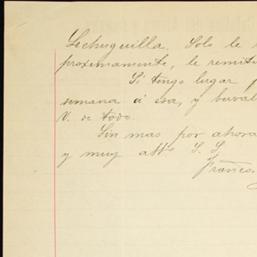 Lechuguilla. Solo le
proximamente, le remit
Si tengo lugar
semana á esa, y
V. de todo.
Sin mas por ahora
y muy atto S. S.
Francis